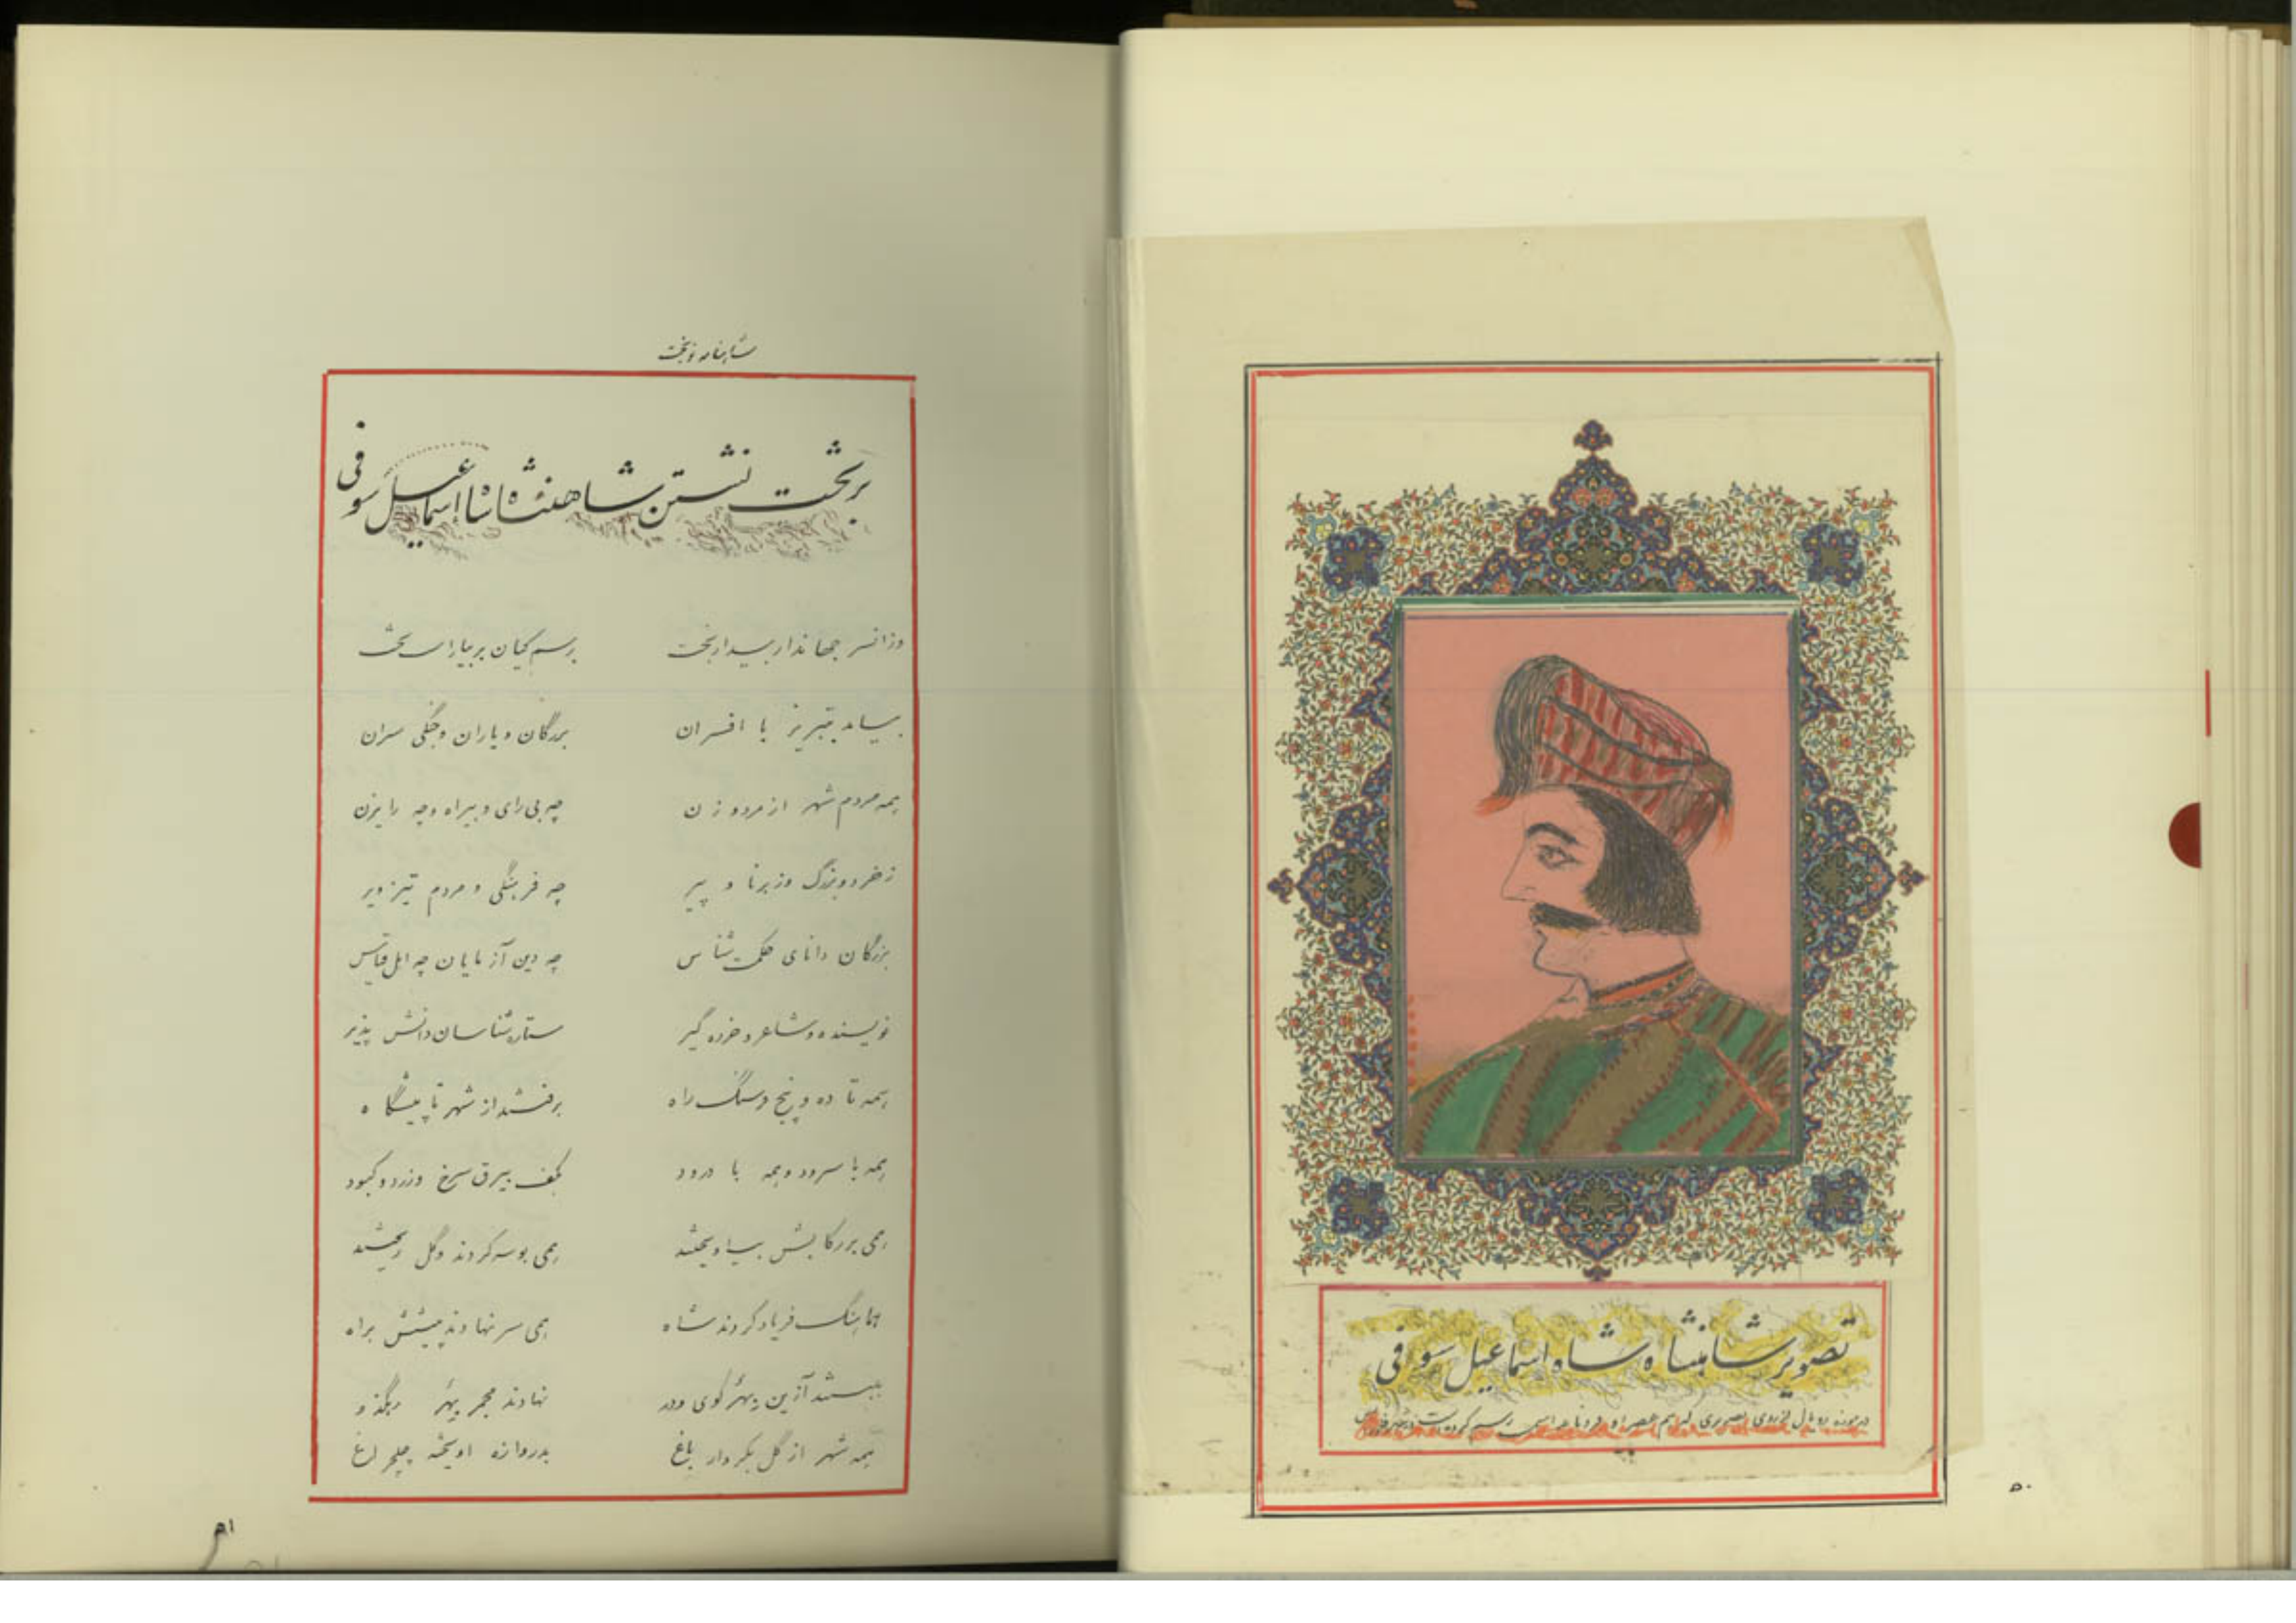 تصویر شاهنشاه شاه اسماعیل سوفی
در موزه رویال از روی تصویری که هم عصر او
۵۰
شاهنامه نوبخت
بر تخت نشستن شاهنشاه شاه اسماعیل سوفی
وزانسر جهاندار بیدار بخت برسم کیان بر بیاراست تخت
بیامد بتبریز با افسران بزرگان و یاران و جنگی سران
همه مردم شهر از مرد و زن چه بی رای و بیراه و چه رایزن
ز خرد و بزرگ و ز برنا و پیر چه فرهنگی و مردم تیز ویر
بزرگان دانای حکمت شناس چه دین آزمایان چه اهل قیاس
نویسنده و شاعر و خرده گیر ستاره شناسان دانش پذیر
همه تا ده و پنج فرسنگ راه برفتند از شهر تا پیشگاه
همه با سرود و همه با درود بکف بیرق سرخ و زرد و کبود
همی بر رکابش بیاویختند همی بوسه کردند و گل ریختند
هماهنگ فریاد کردند شاه همی سر نهادند پیشش براه
ببستند آذین بهر کوی و در نهادند مجمر بهر رهگذر
همه شهر از گل بکردار باغ بدروازه اویخته چلچراغ
۵۱